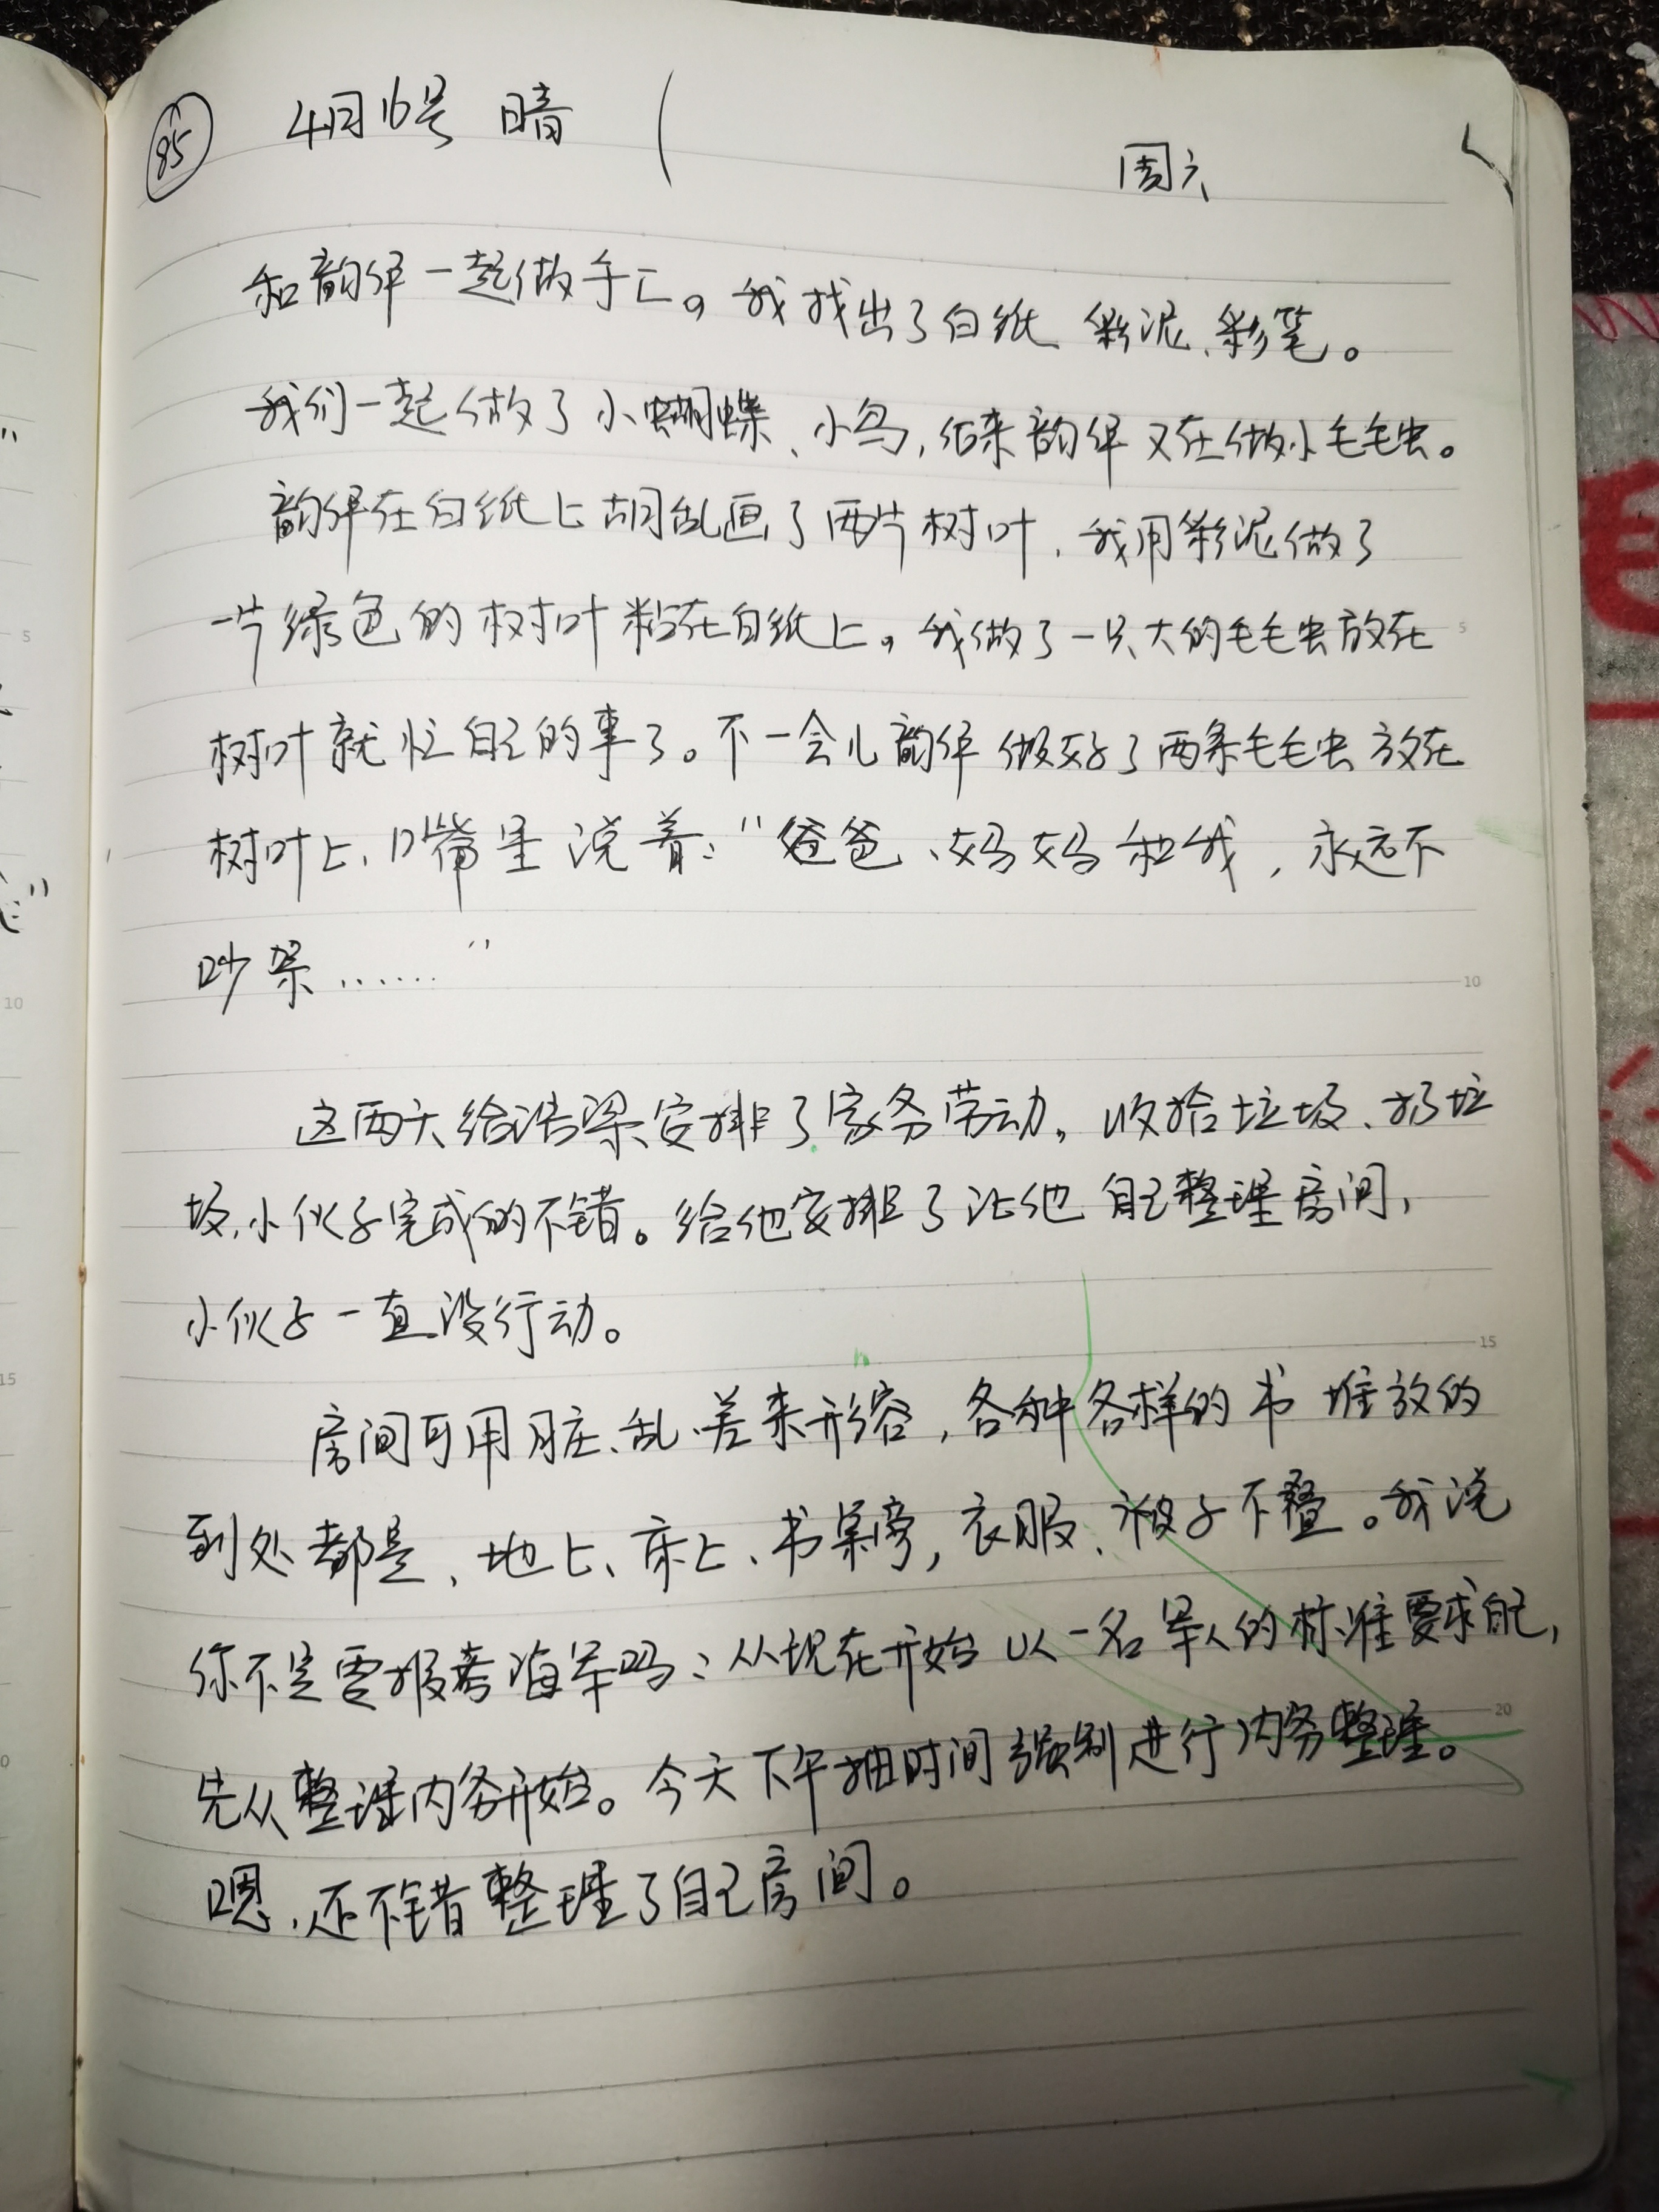 85 4月16号 晴
周六
和韵伊一起做手工。我找出了白纸 彩泥、彩笔。
我们一起做了小蝴蝶、小鸟,后来韵伊又在做小毛毛虫。
韵伊在白纸上胡乱画了两片树叶,我用彩泥做了
一片绿色的树叶粘在白纸上。我做了一只大的毛毛虫放在
树叶就忙自己的事了。不一会儿韵伊做好了两条毛毛虫放在
树叶上、嘴里说着:"爸爸、妈妈和我,永远不
吵架……"
这两天给浩梁安排了家务劳动。收拾垃圾、扔垃
圾,小伙子完成的不错。给他安排了让他自己整理房间,
小伙子一直没行动。
房间可用脏、乱、差来形容,各种各样的书堆放的
到处都是、地上、床上、书桌旁,衣服、被子不叠。我说
你不是要报考海军吗:从现在开始以一名军人的标准要求自己,
先从整理内务开始。今天下午抽时间强制进行内务整理。
嗯,还不错整理了自己房间。
5
10
15
20
5
10
15